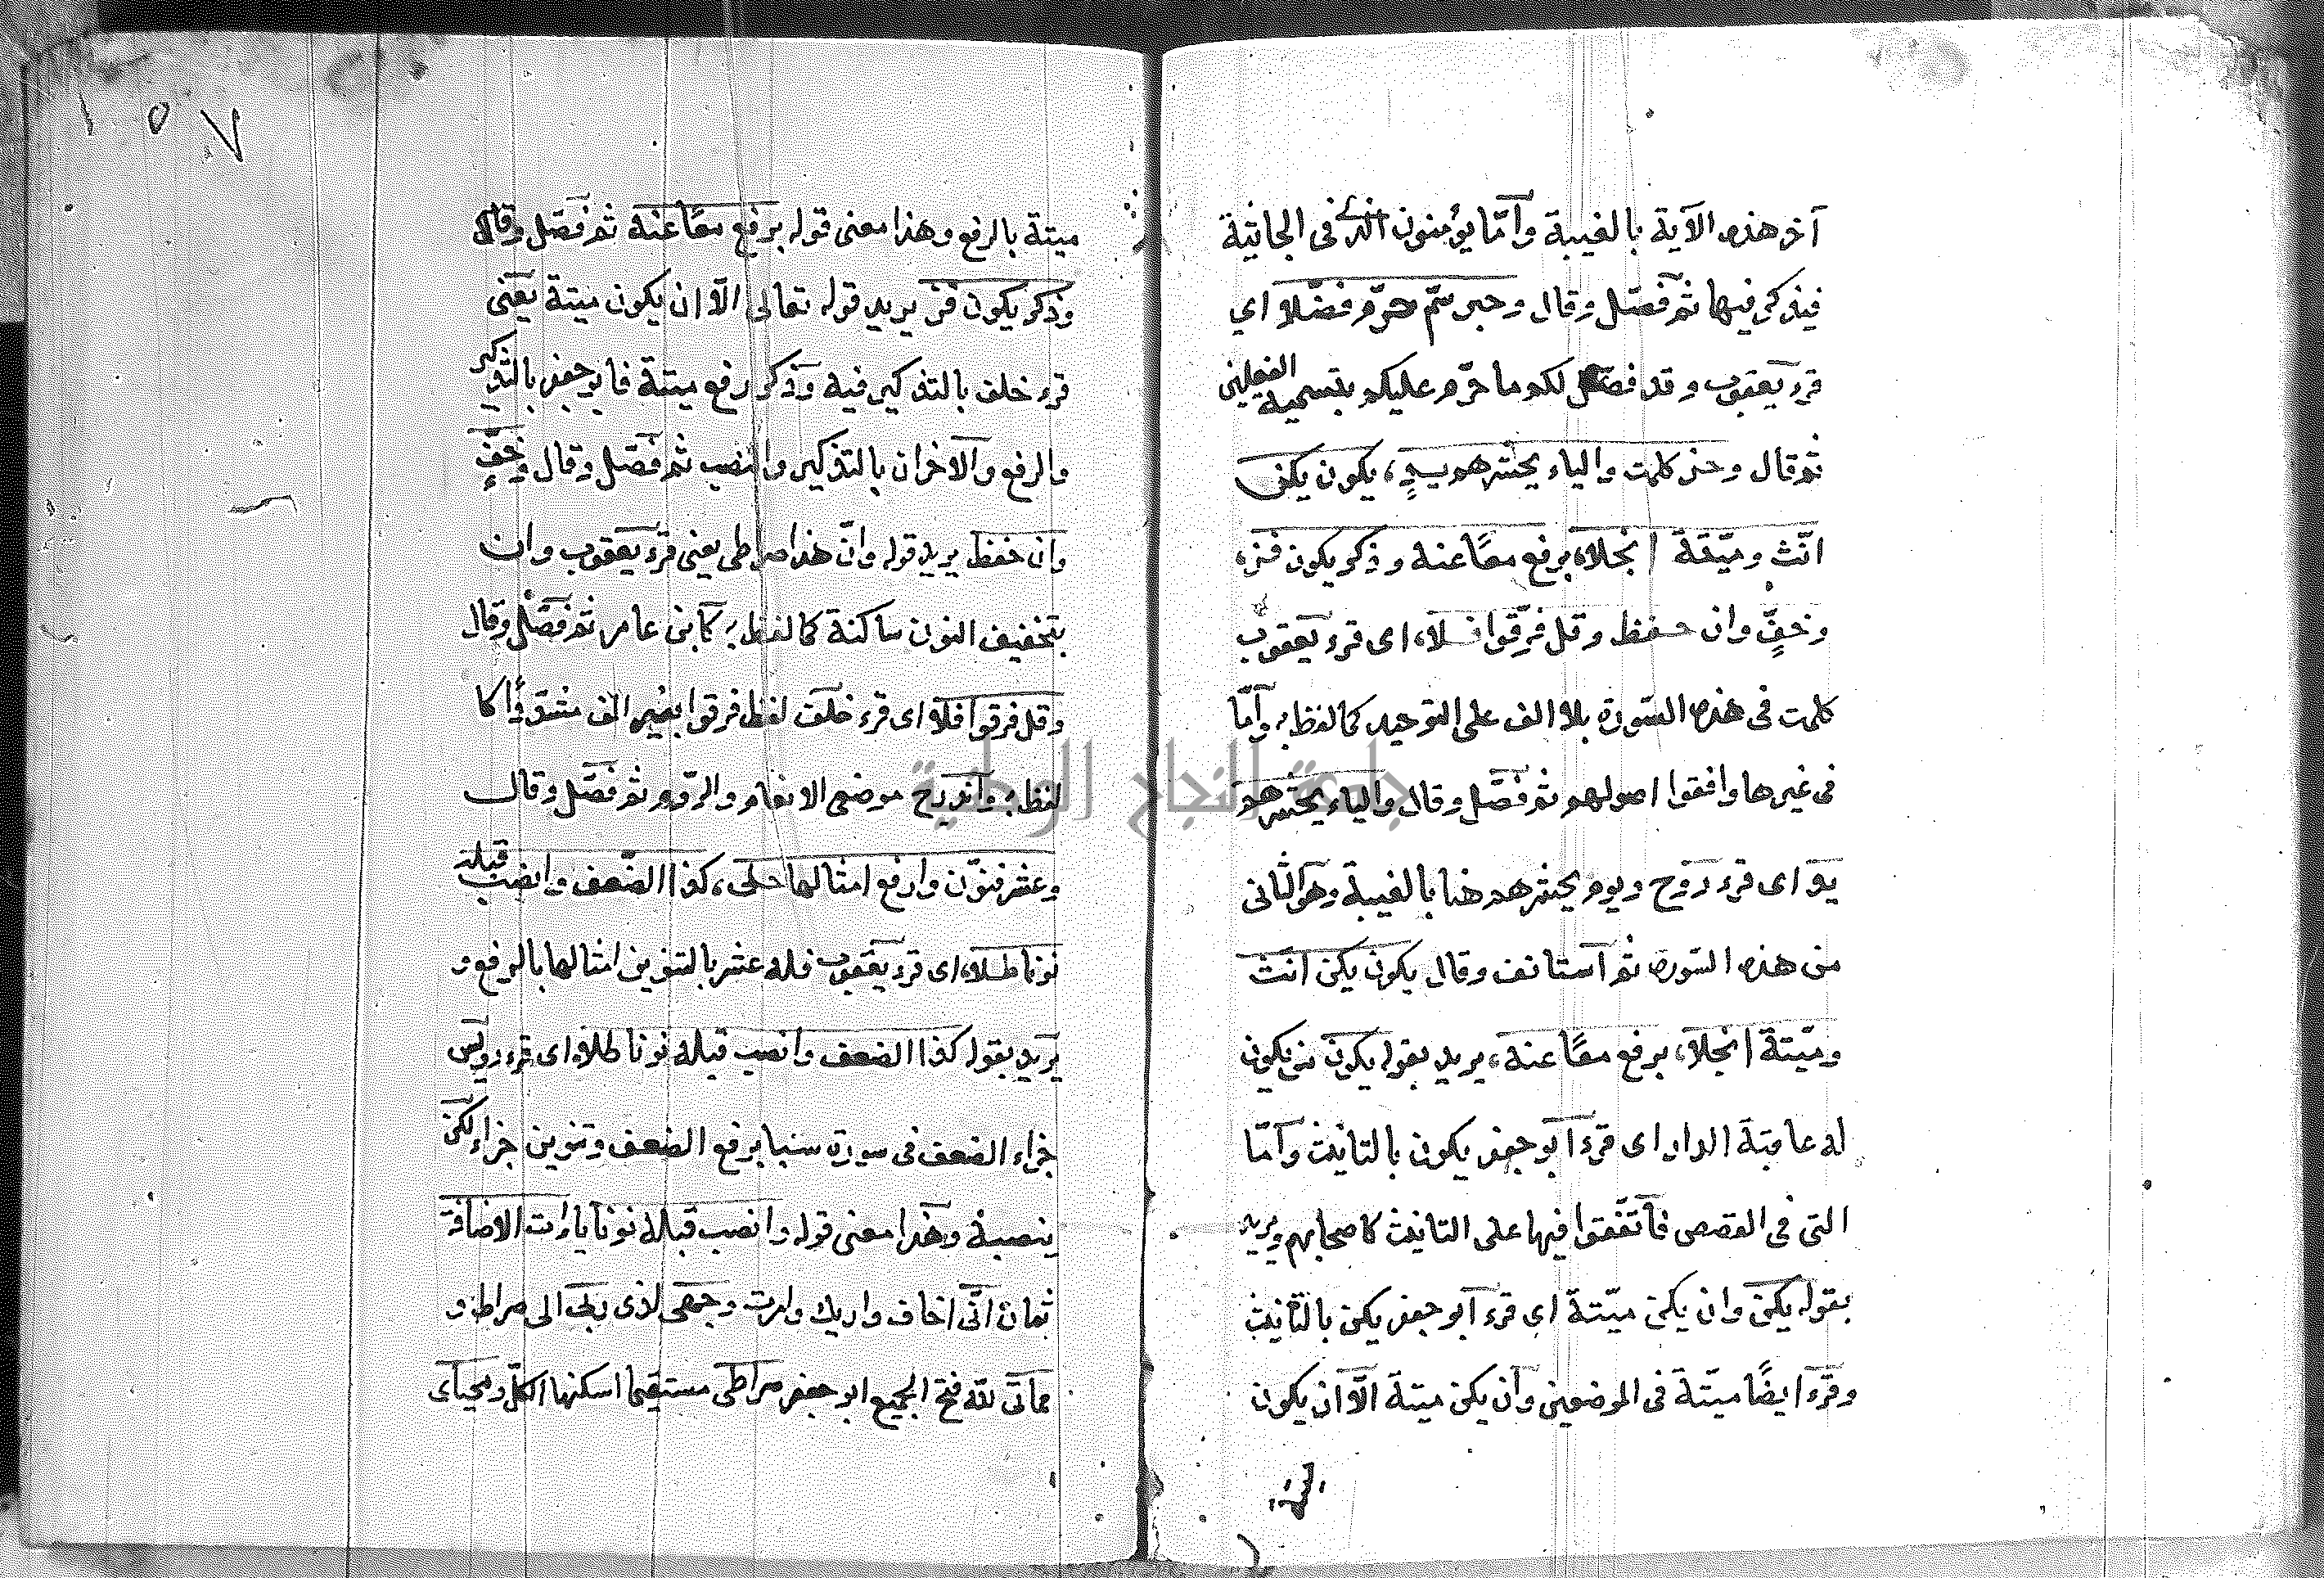 آخر هذه الآية بالغيبة وأمّا يؤمنون الذى فى الجاثية
فيذكر فيها ثم فصّل وقال وحبر سم حرّم فصّلا اي
قرء يعقوب وقد فصّل لكم ما حرّم عليكم بتسمية الفعلين
ثم قال وحز كلمت والياء يحشرهم يدٍ، يكون يكن
انّث وميّتة انجلا، برفع معًا عنه وذكر يكون فز،
وخفٍّ وان حفظ وقل فرّقوا فلا، اى قرء يعقوب
كلمت فى هذه السّورة بلا الف على التوحيد كما لفظ به وأمّا
فى غيرها وافقوا اصولهم ثم فصّل وقال والياء يحشرهم
يد اى قرء روح ويوم يحشرهم هنا بالغيبة وهو الثانى
من هذه السّورة ثم استانف وقال يكون يكن انث
وميّتة انجلا، برفع معًا عنه، يريد بقوله يكون من يكون
له عاقبة الدار اى قرء ابو جعفر يكون بالتانيث وأمّا
التى فى القصص فاتفقوا فيها على التانيث كاصحابهم ويريد
بقوله يكن وان يكن ميّتة اى قرء ابو جعفر يكن بالتّانيث
وقرء ايضًا ميّتة فى الموضعين وان يكن ميتة الّا ان يكون
ميتة بالرفع وهذا معنى قوله برفع معًا عنه ثم فصّل وقال
وذكر يكون فز يريد قوله تعالى الّا ان يكون ميتة يعنى
قرء خلف بالتذكير فيه وذكر رفع ميتة فابو جعفر بالتّذكير
والرفع والاخران بالتذكير والنصب ثم فصّل وقال وخفٍّ
وان حفظ يريد قوله وانّ هذا صراطى يعنى قرء يعقوب وان
بتخفيف النون ساكنة كما لفظ به كابن عامر ثم فصّل وقال
وقل فرقوا فلا، اى قرء خلف لفظ فرقوا بغير الف مشدّدا كما
لفظ به واندرج موضعى الانعام والرّوم ثم فصّل وقال
وعشر فنوّن وارفع امثالها حلى، كذا الضّعف وانصب قبله
نونا طلا، اى قرء يعقوب فله عشر بالتنوين امثالها بالرفع و
يريد بقوله كذا الضعف وانصب قبله نونا طلا، اى قرء رويس
جزاء الضعف فى سورة سبا برفع الضعف وتنوين جزاء لكن
ينصبه وهذا معنى قوله وانصب قبله نونا ياءات الاضافة
ثمان انّى اخاف واريك وامرت وجهى لذى ربى الى صراط و
مماتى لله فتح الجميع ابو جعفر صراطى مستقيما اسكنها الكلّ ومحياى
ميتة
١٥٧
جامعة النجاح الوطنية